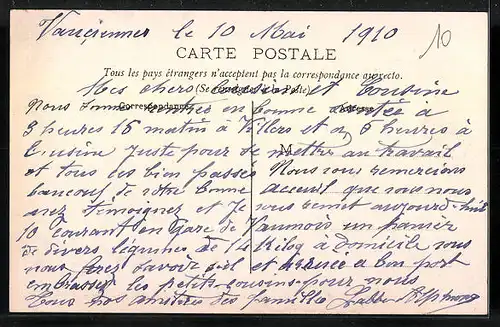 Vauciennes le 10 Mai 1910
10
CARTE POSTALE
Tous les pays étrangers n'acceptent pas la correspondance au recto.
(Se renseigner à la Poste)
Mes chers Cousin et Cousine
Correspondance
Adresse
Nous sommes rentrés en bonne santée à
3 heures 16 matin à Villers et a 6 heures à
L'usine juste pour se mettre au travail
M
et tous les bien passés Nous vous remercions
beaucoup de votre bonne acceuil que vous nous
avez témoignez et Je vous remet aujourd'hui
10 courant en Gare de Vaumoise un panier
de divers légumes de 14 Kilog à domicile vous
nous ferez savoir si il et arrivée à bon port
embrasser les petits cousins pour nous
Tous nos amitiés des familles